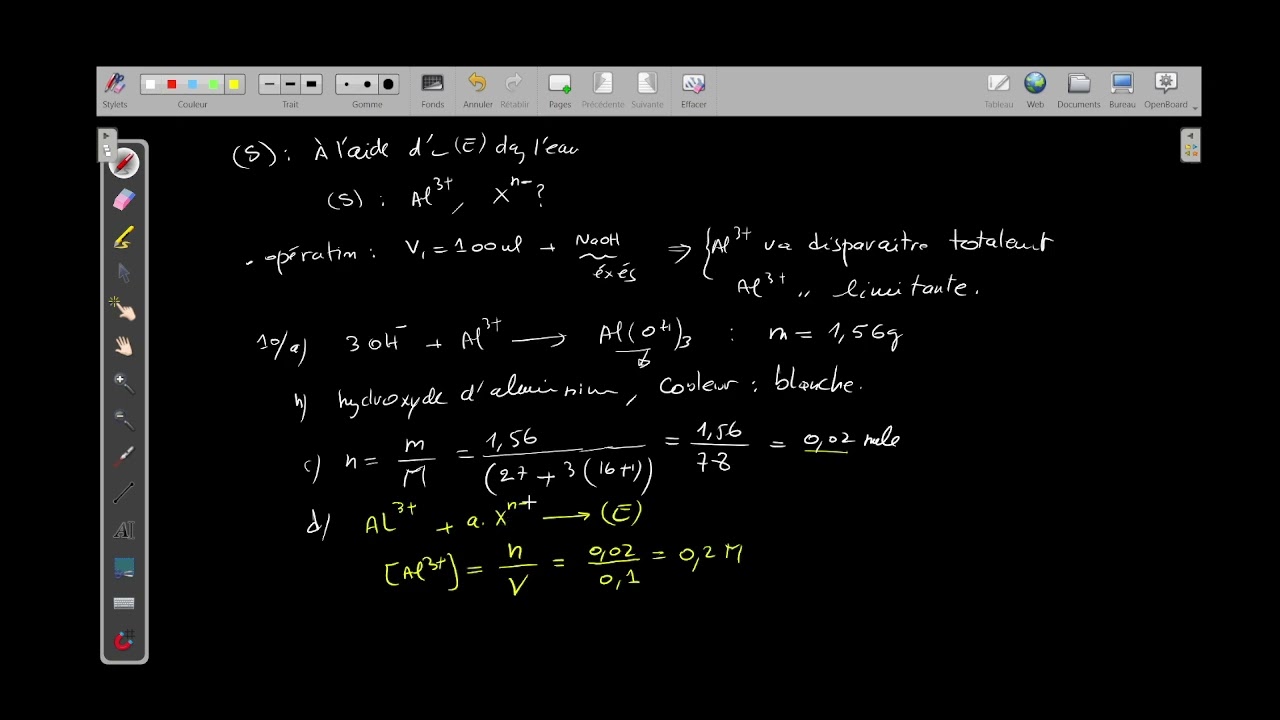 Stylets Couleur Trait Gomme Fonds Annuler Rétablir Pages Précédente Suivante Effacer Tableau Web Documents Bureau OpenBoard
(S) : À l'aide d' (E) l'eau
(S) : Al³⁺, Xⁿ⁻ ?
. opération : V₁ = 100 ml + NaOH ⇒ { Al³⁺ va disparaitre totalement
éxés Al³⁺ " limitante.
1°/a) 3 OH⁻ + Al³⁺ → Al(OH)₃ : m = 1,56g
b) hydroxyde d'aluminium, couleur : blanche.
c) n = m/M = 1,56/(27 + 3(16+1)) = 1,56/78 = 0,02 mole
d) Al³⁺ + a. Xⁿ⁻ → (E)
[Al³⁺] = n/V = 0,02/0,1 = 0,2 M